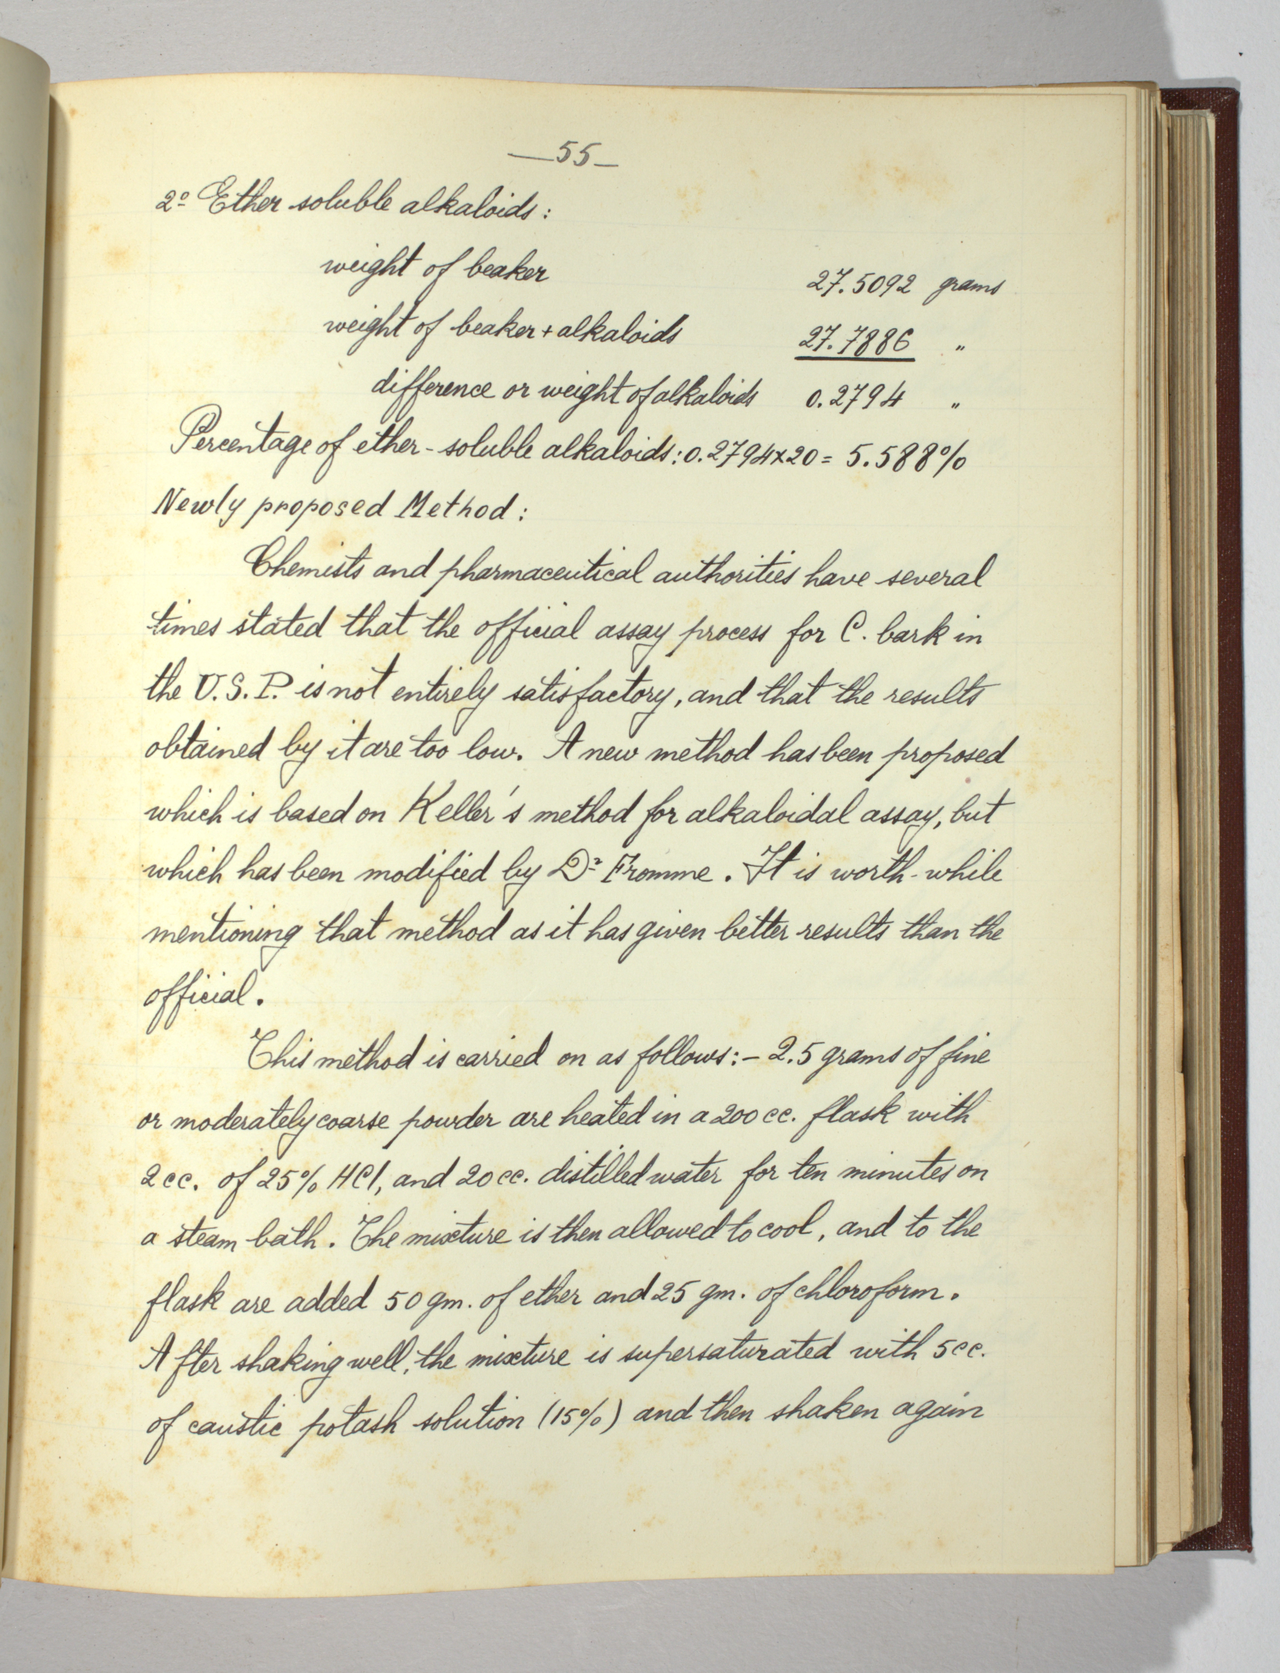 —55—
2º Ether soluble alkaloids:
weight of beaker 27.5092 grams
weight of beaker + alkaloids 27.7886 "
difference or weight of alkaloids 0.2794 "
Percentage of ether-soluble alkaloids: 0.2794x20 = 5.588%
Newly proposed Method:
Chemists and pharmaceutical authorities have several
times stated that the official assay process for C. bark in
the U.S.P. is not entirely satisfactory, and that the results
obtained by it are too low. A new method has been proposed
which is based on Keller's method for alkaloidal assay, but
which has been modified by Dr Fromme. It is worth-while
mentioning that method as it has given better results than the
official.
This method is carried on as follows:— 2.5 grams of fine
or moderately coarse powder are heated in a 200 cc. flask with
2 cc. of 25% HCl, and 20 cc. distilled water for ten minutes on
a steam bath. The mixture is then allowed to cool, and to the
flask are added 50 gm. of ether and 25 gm. of chloroform.
After shaking well, the mixture is supersaturated with 5 cc.
of caustic potash solution (15%) and then shaken again